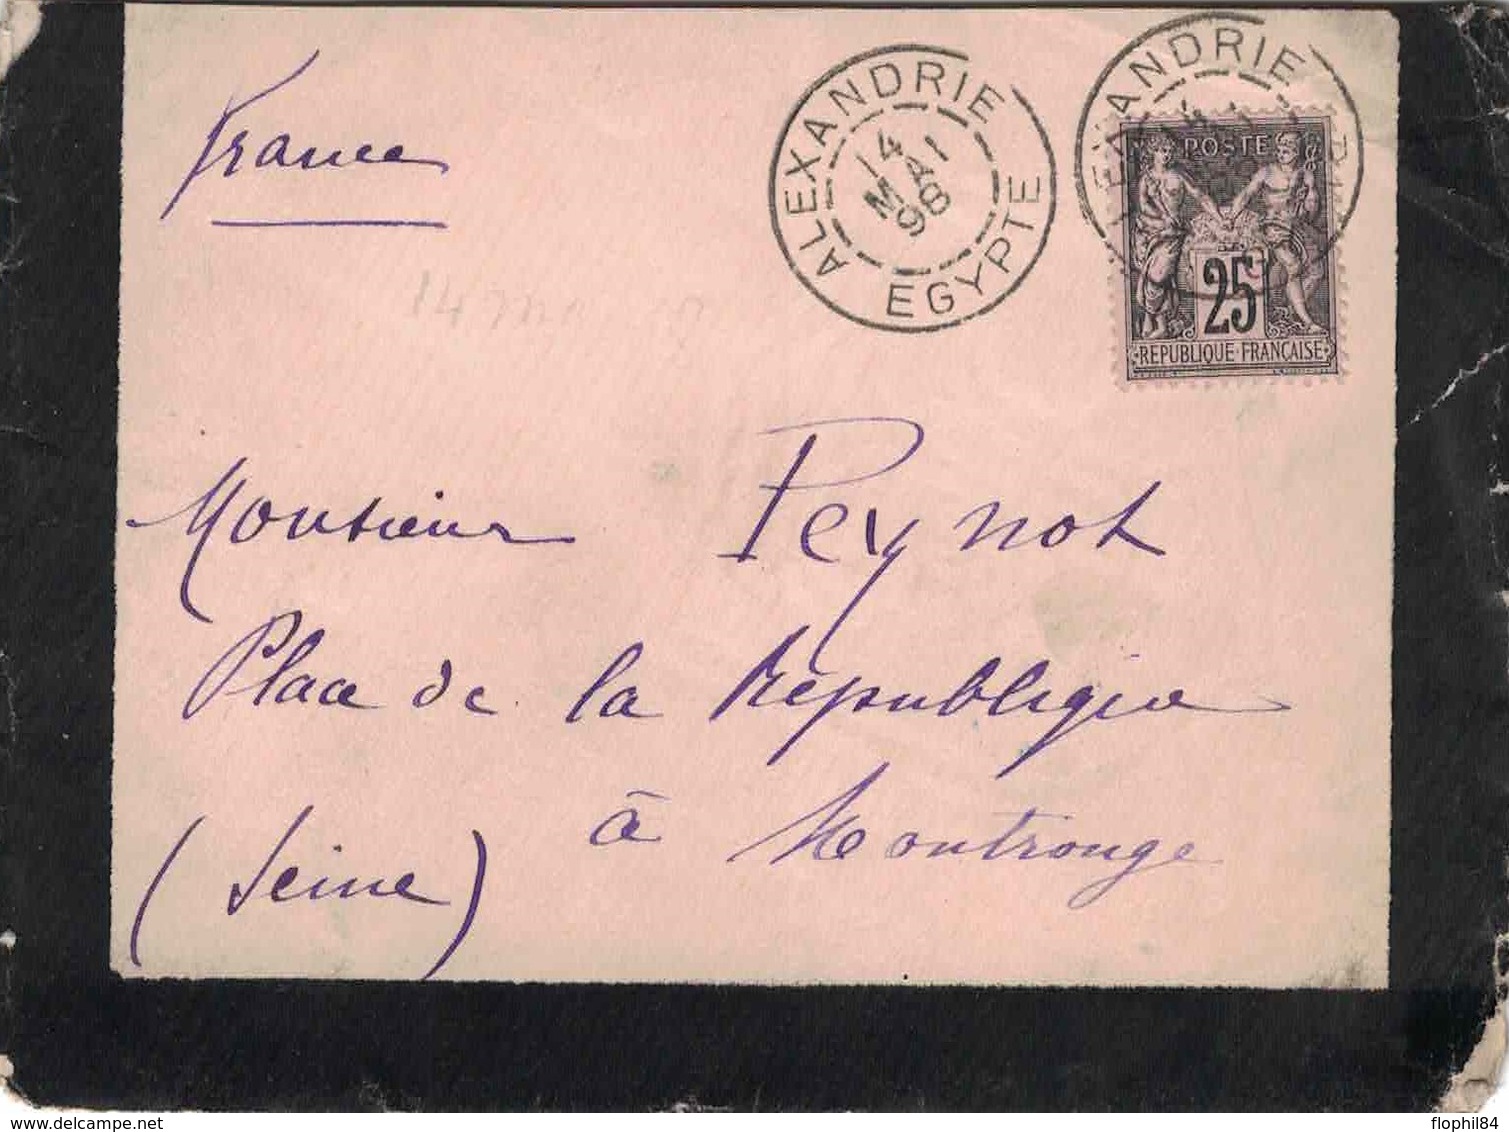 France
ALEXANDRIE
14
MAI
98
EGYPTE
EXANDRIE
POSTE
25
REPUBLIQUE FRANÇAISE
14 mai
Monsieur Peynot
Place de la République
à Montrouge
(Seine)
www.delcampe.net
flophil84